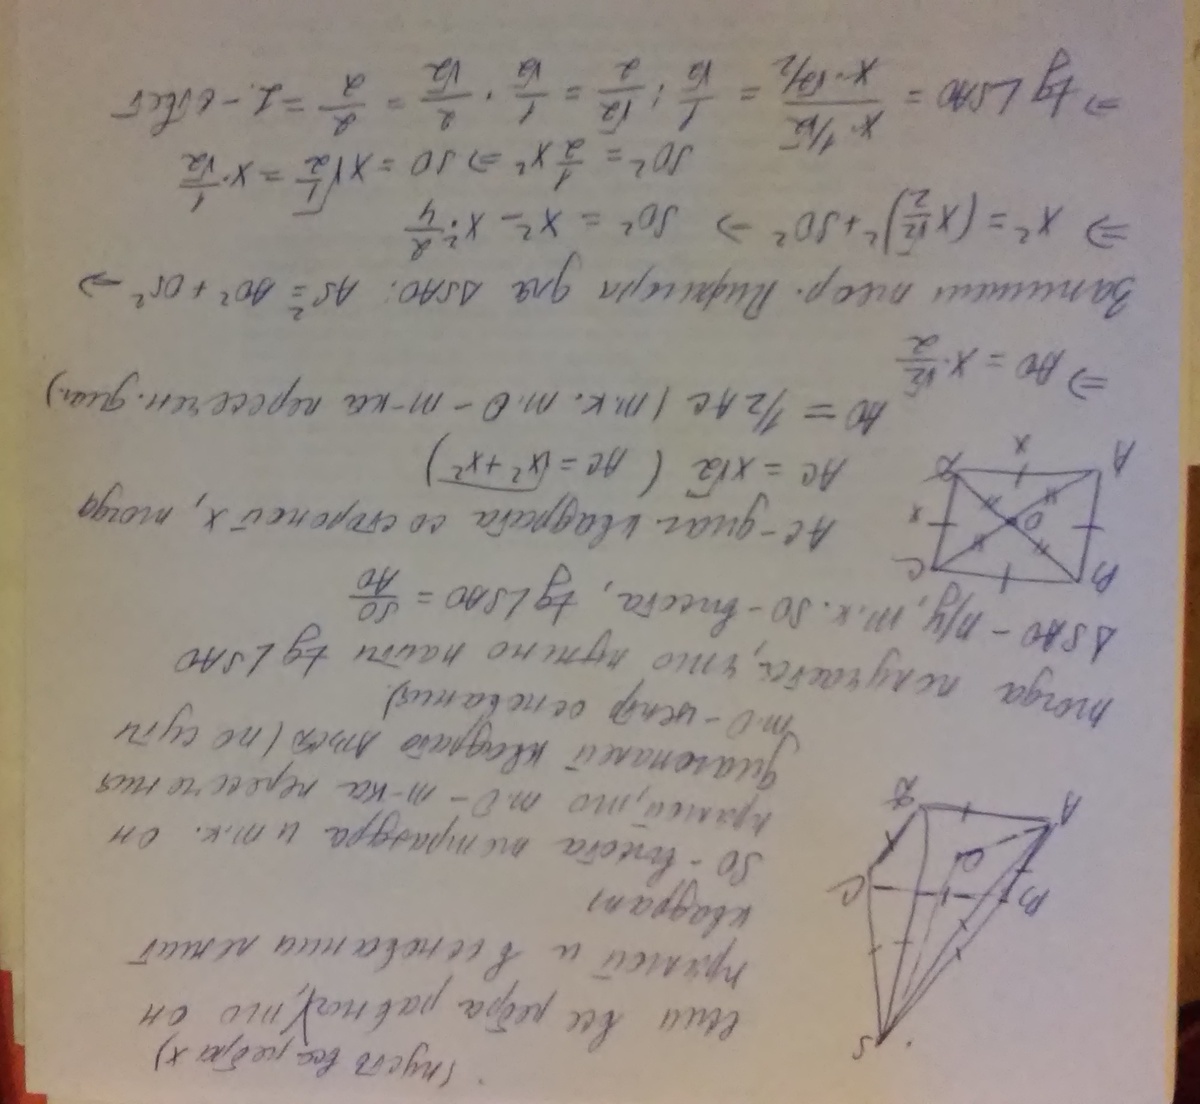 (пусть все ребра x)
если все ребра равны, то он
прямой и в основании лежит
квадрат
SO - высота тетраэдра и т.к. он
прямой, то т.О - т-ка пересечения
диагоналей квадрата (по сути
т.О - центр основания)
тогда получается, что нужно найти tg∠SAO
ΔSAO - п/у, т.к. SO - высота, tg∠SAO = SO/AO
AC - диаг. квадрата со стороной x, тогда
AC = x√2 (AC = √x² + x²)
AO = 1/2 AC (т.к. т.О - т-ка пересечен. диаг.)
⇒ AO = x·√2/2
Запишем теор. Пифагора для ΔSAO: AS² = AO² + OS² ⇒
⇒ x² = (x√2/2)² + SO² ⇒ SO² = x² - x²·2/4
SO² = 1/2 x² ⇒ SO = x√1/2 = x·1/√2
⇒ tg∠SAO = x·1/√2 / x·√2/2 = 1/√2 : √2/2 = 1/√2 · 2/√2 = 2/2 = 1. - ответ
S
C
B
O
x
D
A
B
C
O
x
A
D
x